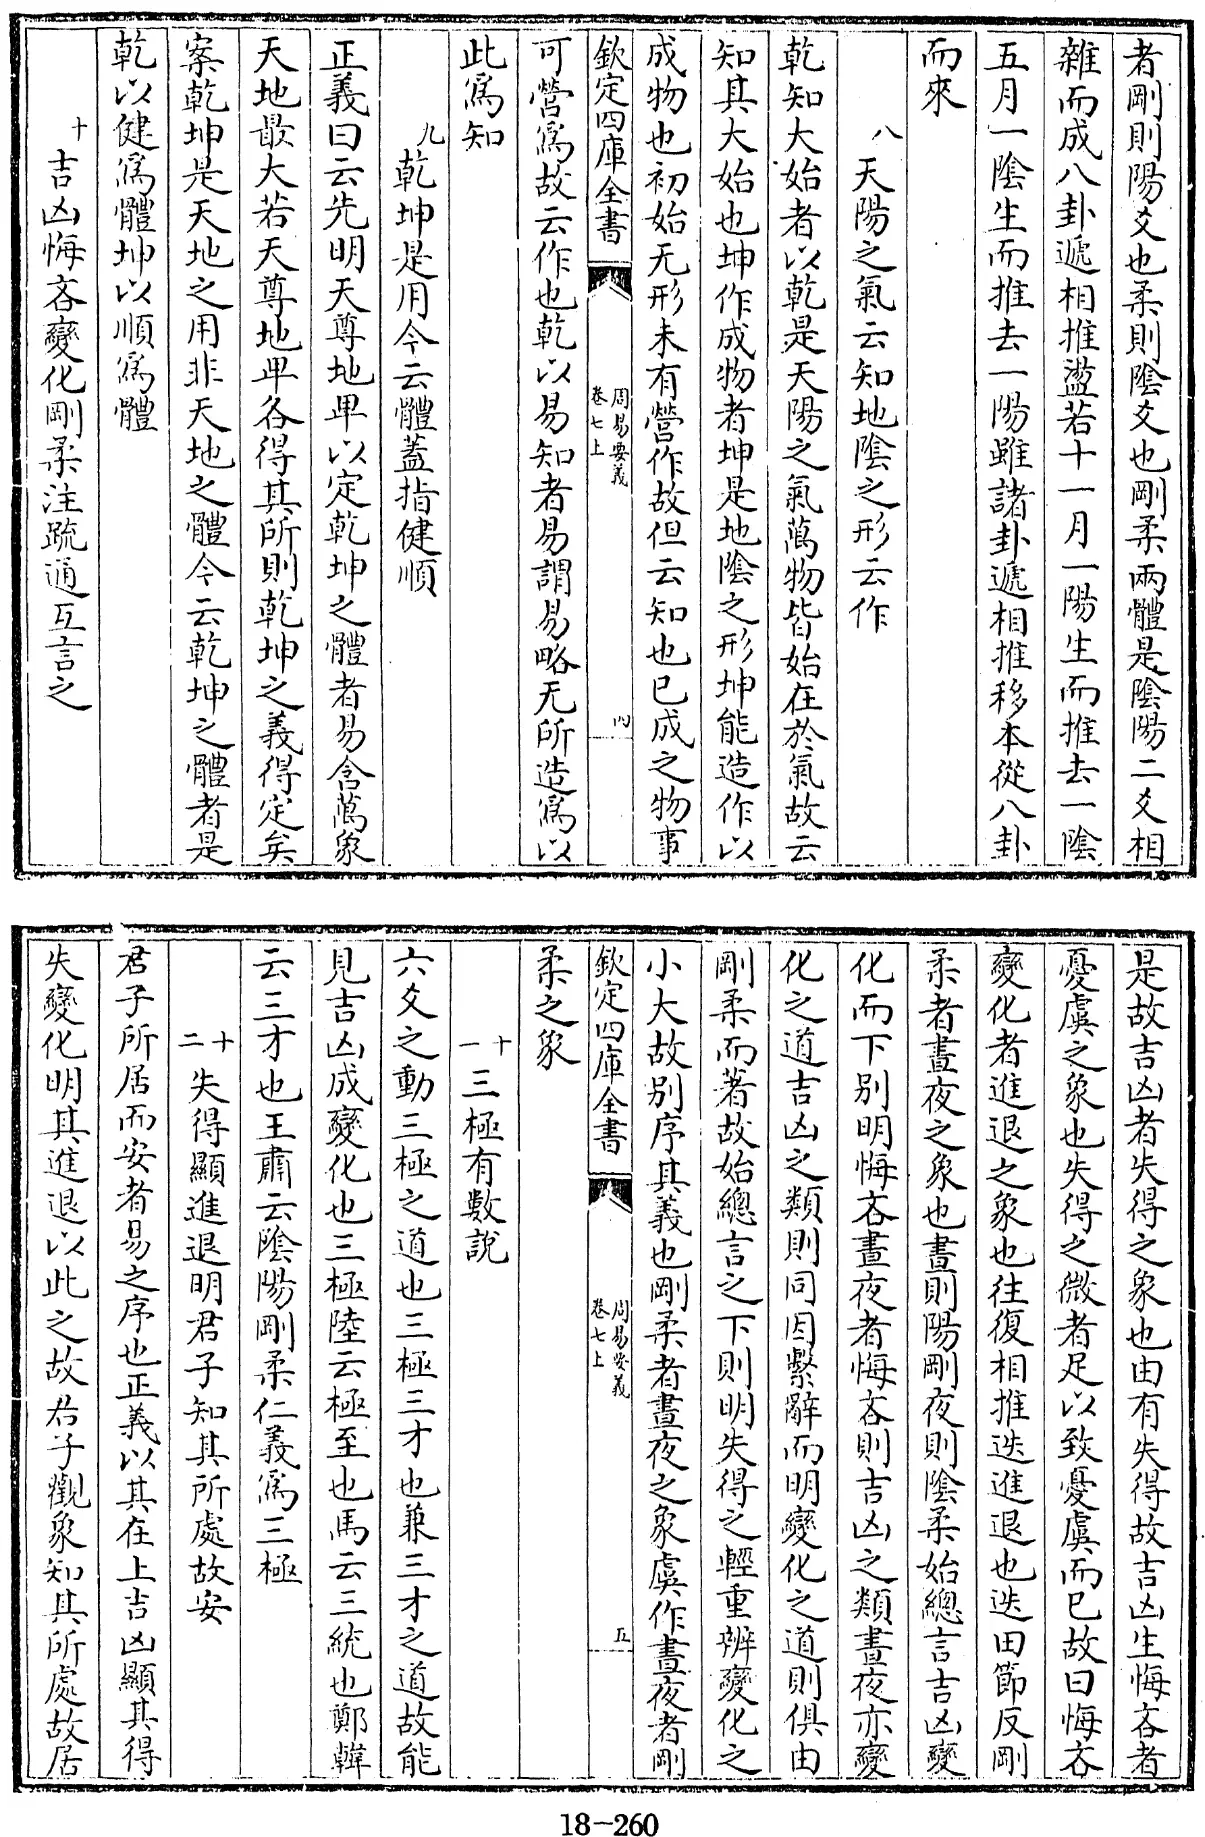 者剛則陽爻也柔則陰爻也剛柔兩體是陰陽二爻相
雜而成八卦遞相推盪若十一月一陽生而推去一陰
五月一陰生而推去一陽雖諸卦遞相推移本從八卦
而來
八天陽之氣云知地陰之形云作
乾知大始者以乾是天陽之氣萬物皆始在於氣故云
知其大始也坤作成物者坤是地陰之形坤能造作以
成物也初始无形未有營作故但云知也已成之物事
欽定四庫全書
周易要義
卷七上
四
可營為故云作也乾以易知者易謂易略无所造為以
此為知
九乾坤是用今云體蓋指健順
正義曰云先明天尊地卑以定乾坤之體者易含萬象
天地最大若天尊地卑各得其所則乾坤之義得定矣
案乾坤是天地之用非天地之體今云乾坤之體者是
乾以健為體坤以順為體
十吉凶悔吝變化剛柔注疏通互言之
是故吉凶者失得之象也由有失得故吉凶生悔吝者
憂虞之象也失得之微者足以致憂虞而已故曰悔吝
變化者進退之象也往復相推迭進退也迭田節反剛
柔者晝夜之象也晝則陽剛夜則陰柔始總言吉凶變
化而下別明悔吝晝夜者悔吝則吉凶之類晝夜亦變
化之道吉凶之類則同因繫辭而明變化之道則俱由
剛柔而著故始總言之下則明失得之輕重辨變化之
小大故別序其義也剛柔者晝夜之象虞作晝夜者剛
欽定四庫全書
周易要義
卷七上
五
柔之象
十一三極有數說
六爻之動三極之道也三極三才也兼三才之道故能
見吉凶成變化也三極陸云極至也馬云三統也鄭韓
云三才也王肅云陰陽剛柔仁義為三極
十二失得顯進退明君子知其所處故安
君子所居而安者易之序也正義以其在上吉凶顯其得
失變化明其進退以此之故君子觀象知其所處故居
18-260